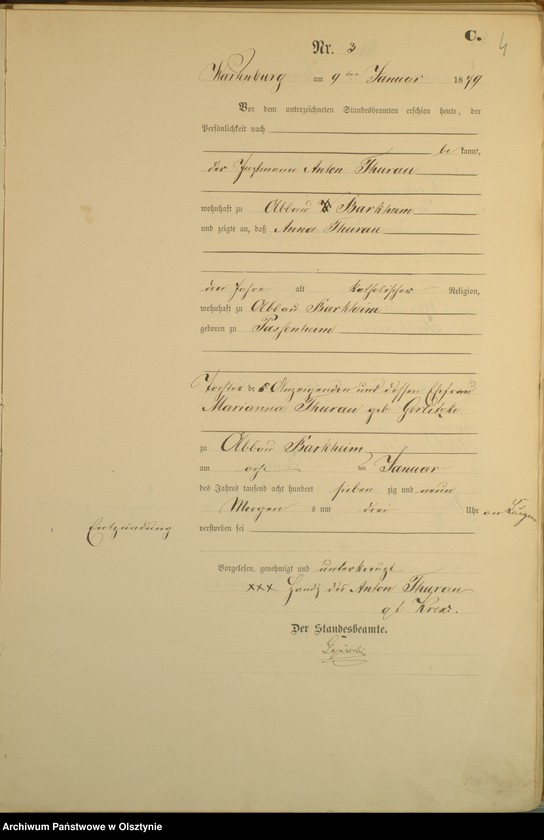 C.
4
Nr. 3
Wartenburg am 9ten Januar 1879
Vor dem unterzeichneten Standesbeamten erschien heute, der
Persönlichkeit nach
be kannt,
der Instmann Anton Thurau
wohnhaft zu Abbau Barkheim
und zeigte an, daß Anna Thurau
drei Jahre alt katholischer Religion,
wohnhaft zu Abbau Barkheim
geboren zu Passenheim
Tochter des Anzeigenden und dessen Ehefrau
Marianna Thurau geb Gerlitzki
zu Abbau Barkheim
am acht ten Januar
des Jahres tausend acht hundert sieben zig und neun
Morgen s um drei Uhr an Lungen
Entzündung
verstorben sei
Vorgelesen, genehmigt und unterkreuzt
xxx Handz des Anton Thurau
Der Standesbeamte.
Archiwum Państwowe w Olsztynie